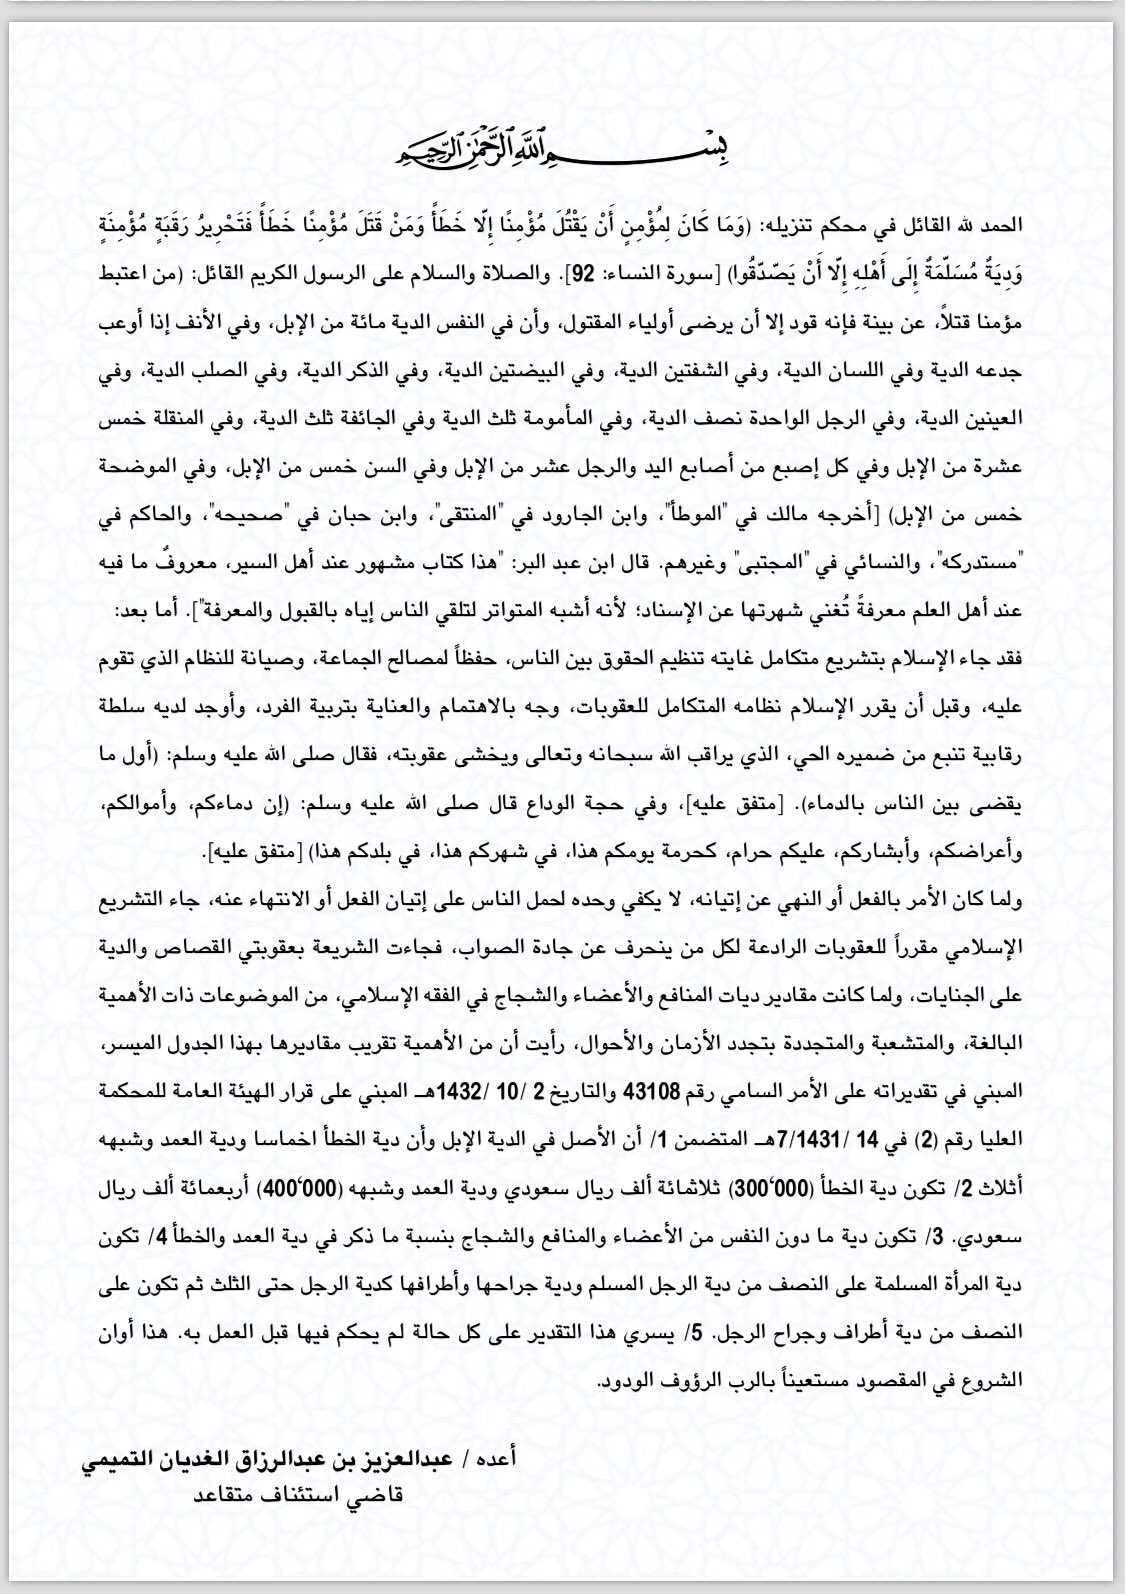 بِسْمِ اللَّهِ الرَّحْمَنِ الرَّحِيمِ
الحمد لله القائل في محكم تنزيله: (وَمَا كَانَ لِمُؤْمِنٍ أَنْ يَقْتُلَ مُؤْمِنًا إِلَّا خَطَأً وَمَنْ قَتَلَ مُؤْمِنًا خَطَأً فَتَحْرِيرُ رَقَبَةٍ مُؤْمِنَةٍ
وَدِيَةٌ مُسَلَّمَةٌ إِلَى أَهْلِهِ إِلَّا أَنْ يَصَّدَّقُوا) [سورة النساء: 92]. والصلاة والسلام على الرسول الكريم القائل: (من اعتبط
مؤمنا قتلاً، عن بينة فإنه قود إلا أن يرضى أولياء المقتول، وأن في النفس الدية مائة من الإبل، وفي الأنف إذا أوعب
جدعه الدية وفي اللسان الدية، وفي الشفتين الدية، وفي البيضتين الدية، وفي الذكر الدية، وفي الصلب الدية، وفي
العينين الدية، وفي الرجل الواحدة نصف الدية، وفي المأمومة ثلث الدية وفي الجائفة ثلث الدية، وفي المنقلة خمس
عشرة من الإبل وفي كل إصبع من أصابع اليد والرجل عشر من الإبل وفي السن خمس من الإبل، وفي الموضحة
خمس من الإبل) [أخرجه مالك في "الموطأ"، وابن الجارود في "المنتقى"، وابن حبان في "صحيحه"، والحاكم في
"مستدركه"، والنسائي في "المجتبى" وغيرهم. قال ابن عبد البر: "هذا كتاب مشهور عند أهل السير، معروفٌ ما فيه
عند أهل العلم معرفةً تُغني شهرتها عن الإسناد؛ لأنه أشبه المتواتر لتلقي الناس إياه بالقبول والمعرفة"]. أما بعد:
فقد جاء الإسلام بتشريع متكامل غايته تنظيم الحقوق بين الناس، حفظاً لمصالح الجماعة، وصيانة للنظام الذي تقوم
عليه، وقبل أن يقرر الإسلام نظامه المتكامل للعقوبات، وجه بالاهتمام والعناية بتربية الفرد، وأوجد لديه سلطة
رقابية تنبع من ضميره الحي، الذي يراقب الله سبحانه وتعالى ويخشى عقوبته، فقال صلى الله عليه وسلم: (أول ما
يقضى بين الناس بالدماء). [متفق عليه]، وفي حجة الوداع قال صلى الله عليه وسلم: (إن دماءكم، وأموالكم،
وأعراضكم، وأبشاركم، عليكم حرام، كحرمة يومكم هذا، في شهركم هذا، في بلدكم هذا) [متفق عليه].
ولما كان الأمر بالفعل أو النهي عن إتيانه، لا يكفي وحده لحمل الناس على إتيان الفعل أو الانتهاء عنه، جاء التشريع
الإسلامي مقرراً للعقوبات الرادعة لكل من ينحرف عن جادة الصواب، فجاءت الشريعة بعقوبتي القصاص والدية
على الجنايات، ولما كانت مقادير ديات المنافع والأعضاء والشجاج في الفقه الإسلامي، من الموضوعات ذات الأهمية
البالغة، والمتشعبة والمتجددة بتجدد الأزمان والأحوال، رأيت أن من الأهمية تقريب مقاديرها بهذا الجدول الميسر،
المبني في تقديراته على الأمر السامي رقم 43108 والتاريخ 2 /10 /1432هـ المبني على قرار الهيئة العامة للمحكمة
العليا رقم (2) في 14 /7/1431هـ المتضمن 1/ أن الأصل في الدية الإبل وأن دية الخطأ اخماسا ودية العمد وشبهه
أثلاث 2/ تكون دية الخطأ (300‘000) ثلاثمائة ألف ريال سعودي ودية العمد وشبهه (400‘000) أربعمائة ألف ريال
سعودي. 3/ تكون دية ما دون النفس من الأعضاء والمنافع والشجاج بنسبة ما ذكر في دية العمد والخطأ 4/ تكون
دية المرأة المسلمة على النصف من دية الرجل المسلم ودية جراحها وأطرافها كدية الرجل حتى الثلث ثم تكون على
النصف من دية أطراف وجراح الرجل. 5/ يسري هذا التقدير على كل حالة لم يحكم فيها قبل العمل به. هذا أوان
الشروع في المقصود مستعيناً بالرب الرؤوف الودود.
أعده / عبدالعزيز بن عبدالرزاق الغديان التميمي
قاضي استئناف متقاعد